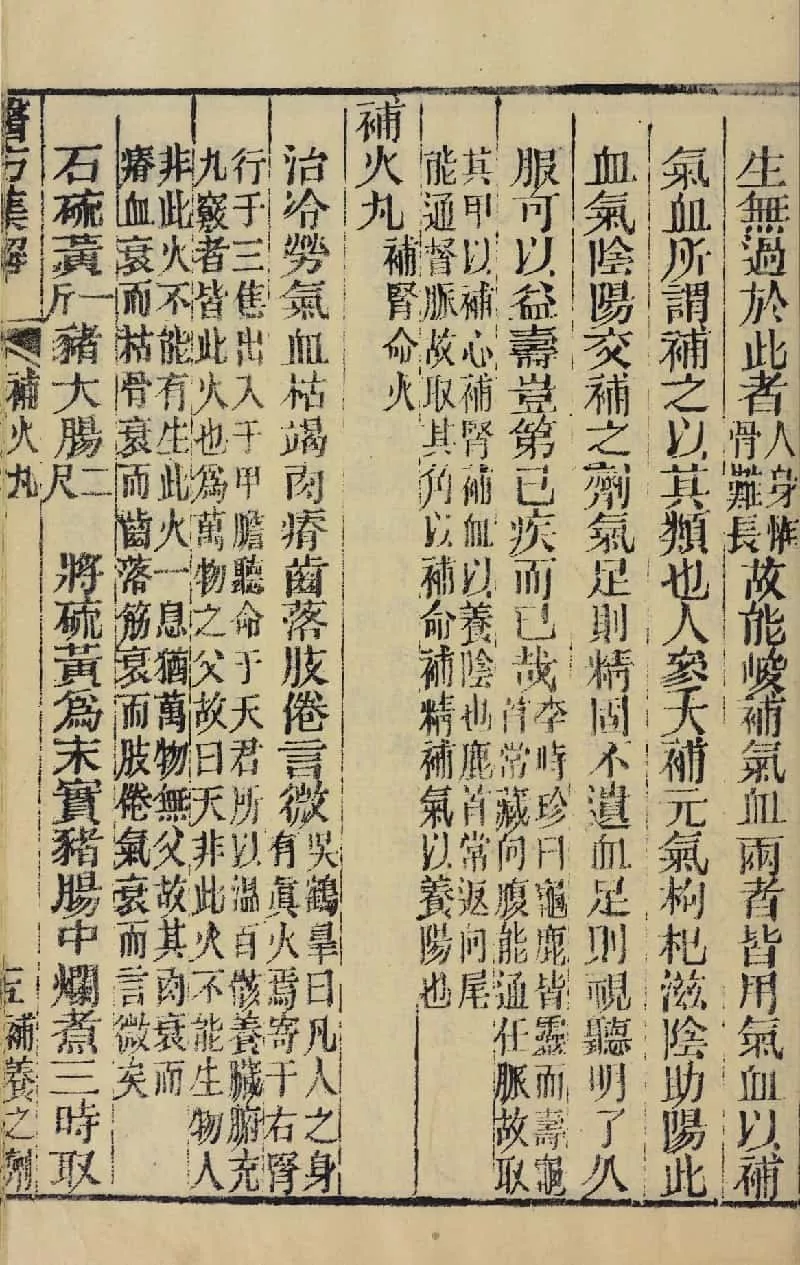 生無過於此者人身惟骨難長故能峻補氣血兩者皆用氣血以補
氣血所謂補之以其類也人參大補元氣枸杞滋陰助陽此
血氣陰陽交補之劑氣足則精固不遺血足則視聽明了久
服可以益壽豈第已疾而已哉李時珍曰龜鹿皆靈而壽龜首常藏向腹能通任脈故取
其甲以補心補腎補血以養陰也鹿首常返向尾
能通督脈故取其角以補命補精補氣以養陽也
補火丸補腎命火
治冷勞氣血枯竭肉瘠齒落肢倦言微吳鶴皋曰凡人之身有眞火焉寄于右腎
行于三焦出入于甲膽聽命于天君所以溫百骸養臟腑充
九竅者皆此火也為萬物之父故曰天非此火不能生物人
非此火不能有生此火一息猶萬物無父故其肉衰而
瘠血衰而枯骨衰而齒落筋衰而肢倦氣衰而言微矣
石硫黃一斤豬大腸二尺 將硫黃為末實豬腸中爛煮三時取
醫方集解 補火丸 補養之劑